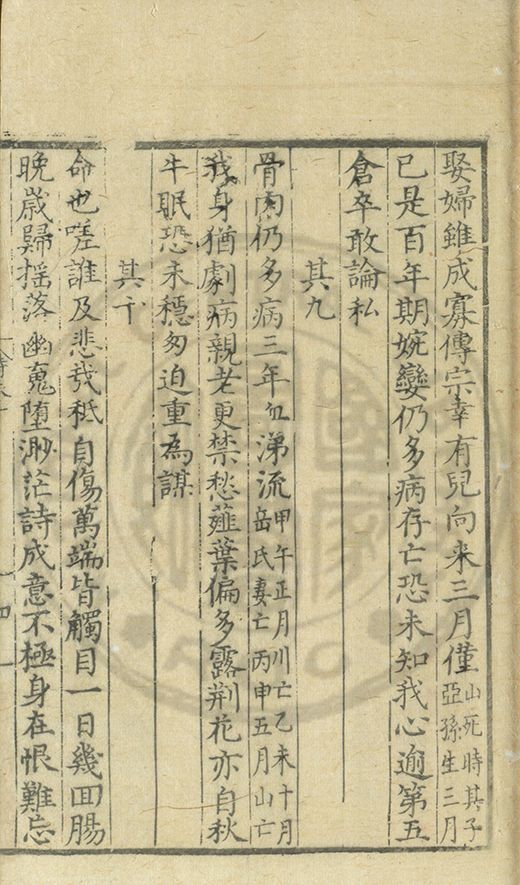 娶婦雖成寡傳宗幸有兒向来三月僅山死時其子亞孫生三月
已是百年期婉孌仍多病存亡恐未知我心逾第五
倉卒敢論私
其九
骨肉仍多病三年血涕流甲午正月川亡乙未十月岳氏妻亡丙申五月山亡
我身猶劇病親老更禁愁薤葉偏多露荆花亦自秋
牛眠恐未穩匆迫重為謀
其十
命也嗟誰及悲㢤秪自傷萬端皆觸目一日幾囬腸
晚嵗歸揺落幽䰟堕渺茫詩成意不極身在恨難忘